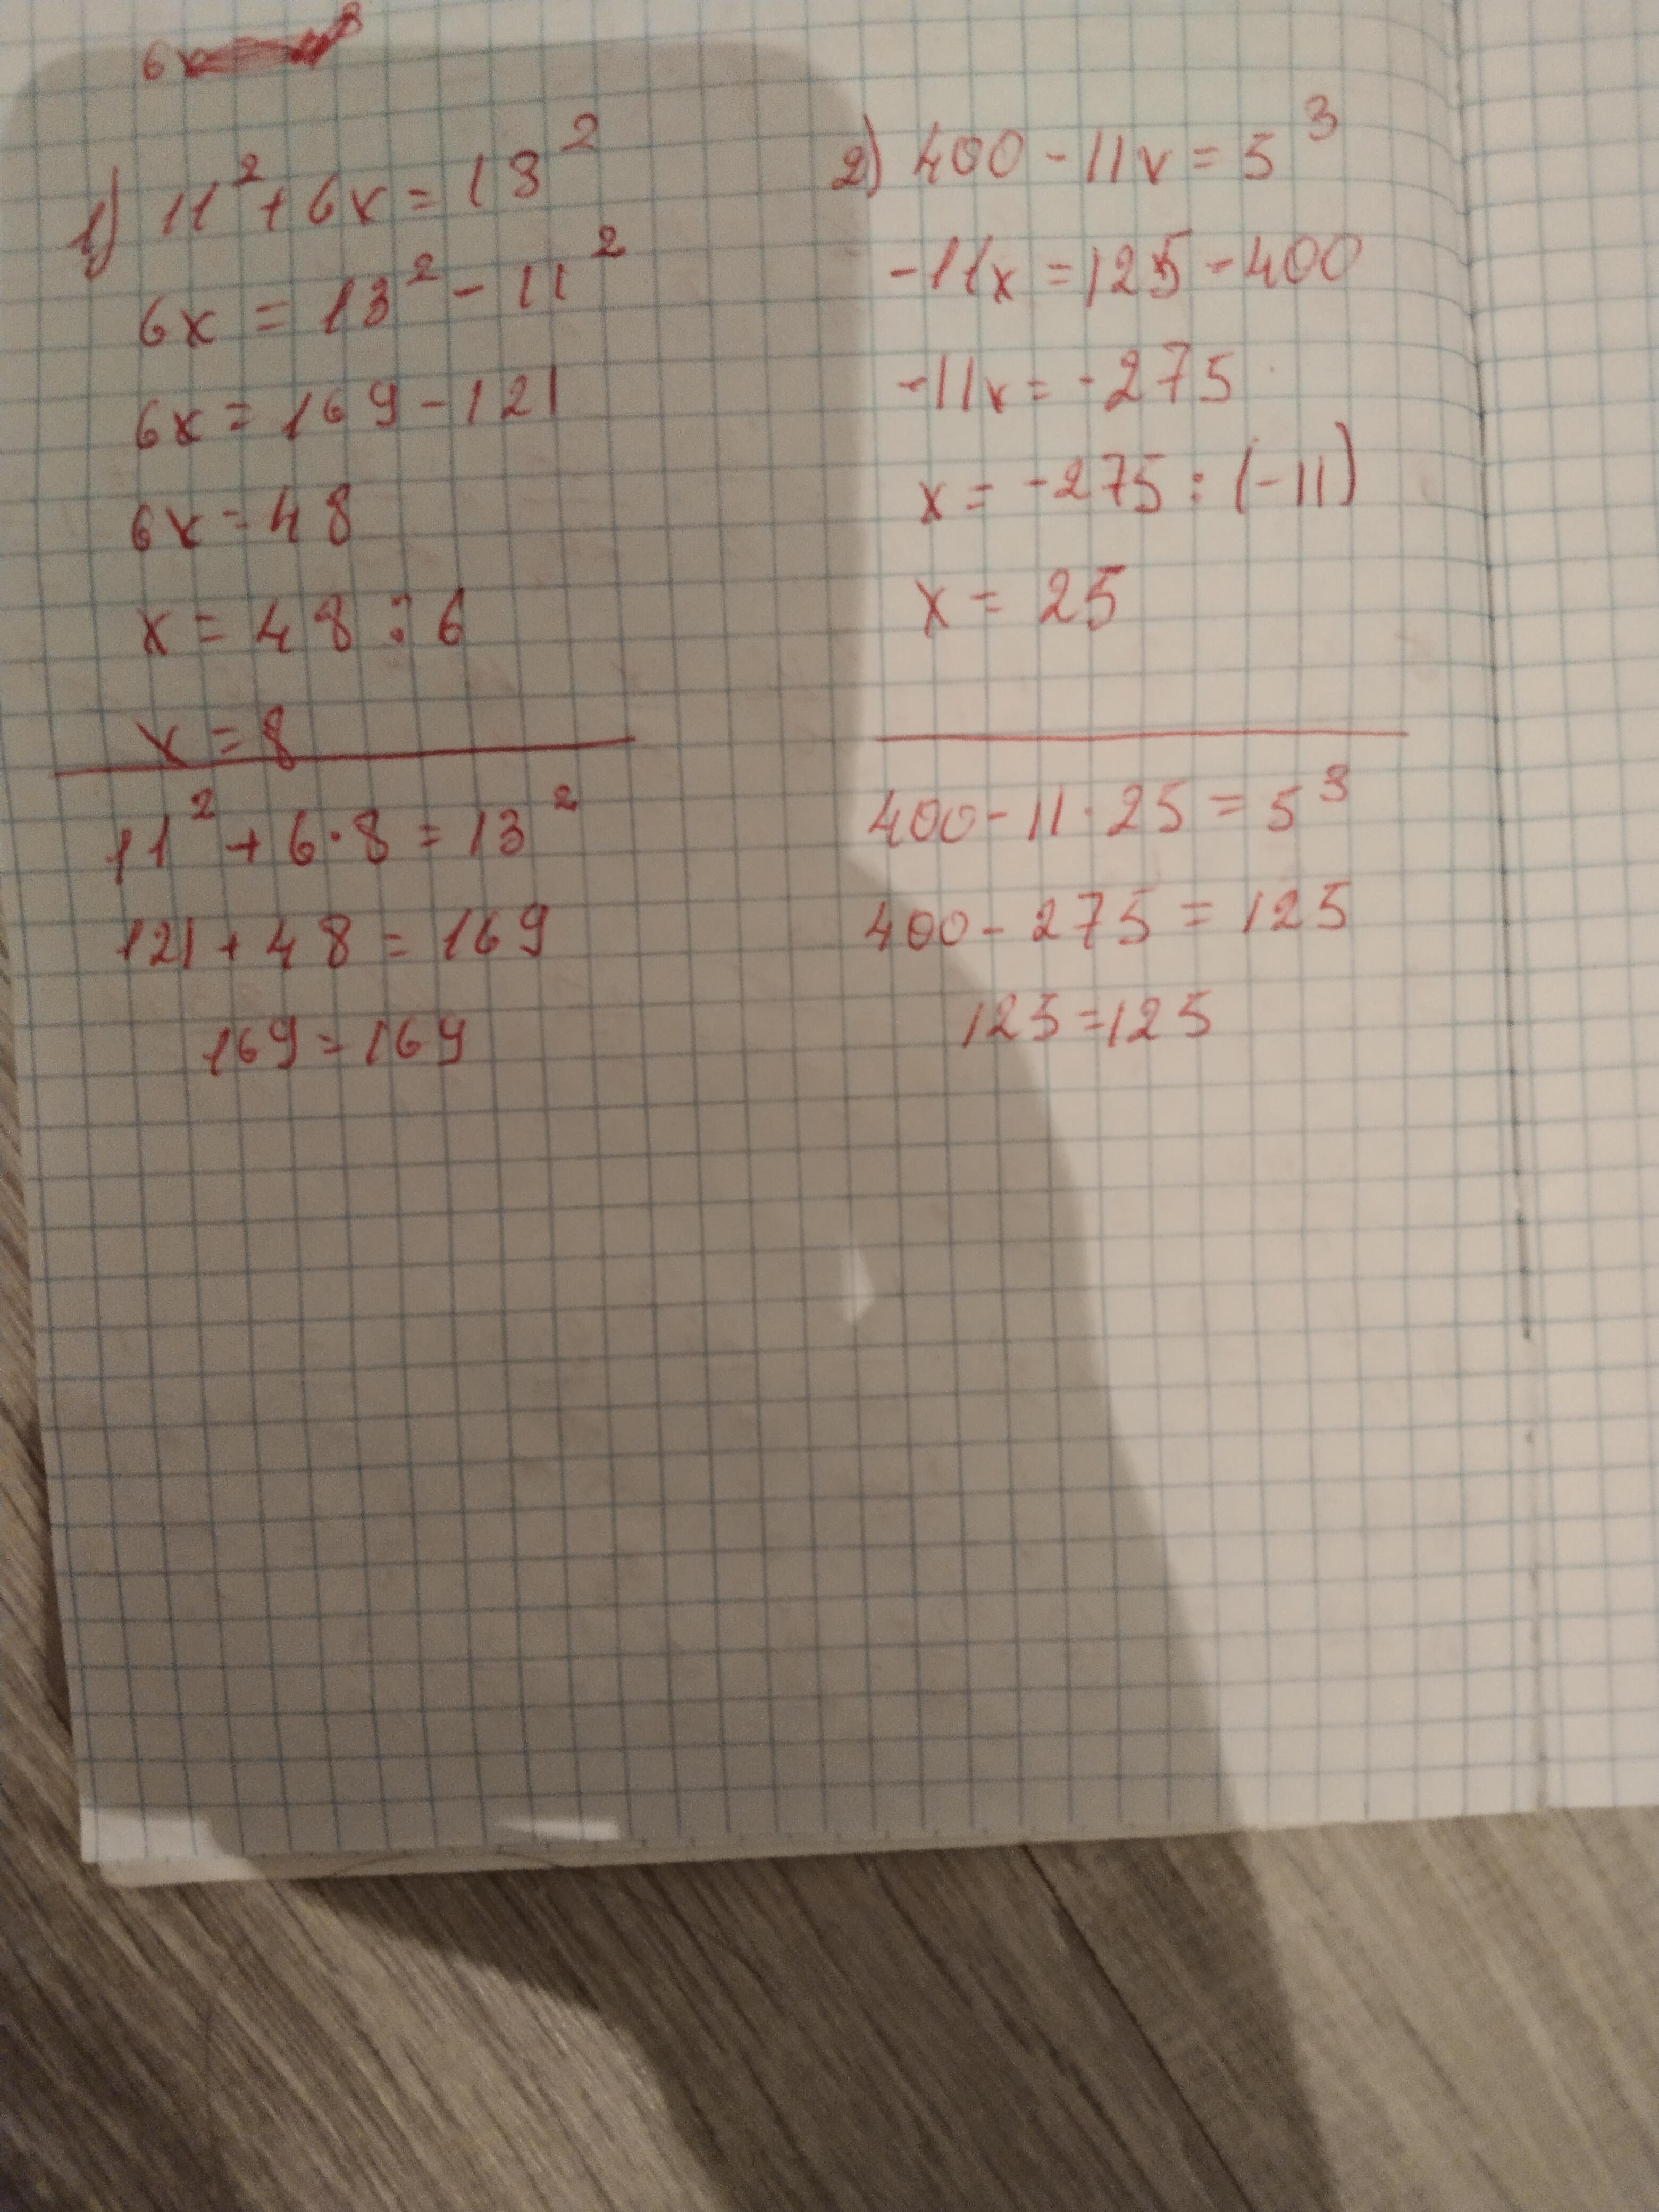 6x
1) 11² + 6x = 13²
6x = 13² - 11²
6x = 169 - 121
6x = 48
x = 48 : 6
x = 8
11² + 6·8 = 13²
121 + 48 = 169
169 = 169
2) 400 - 11x = 5³
-11x = 125 - 400
-11x = -275
x = -275 : (-11)
x = 25
400 - 11·25 = 5³
400 - 275 = 125
125 = 125